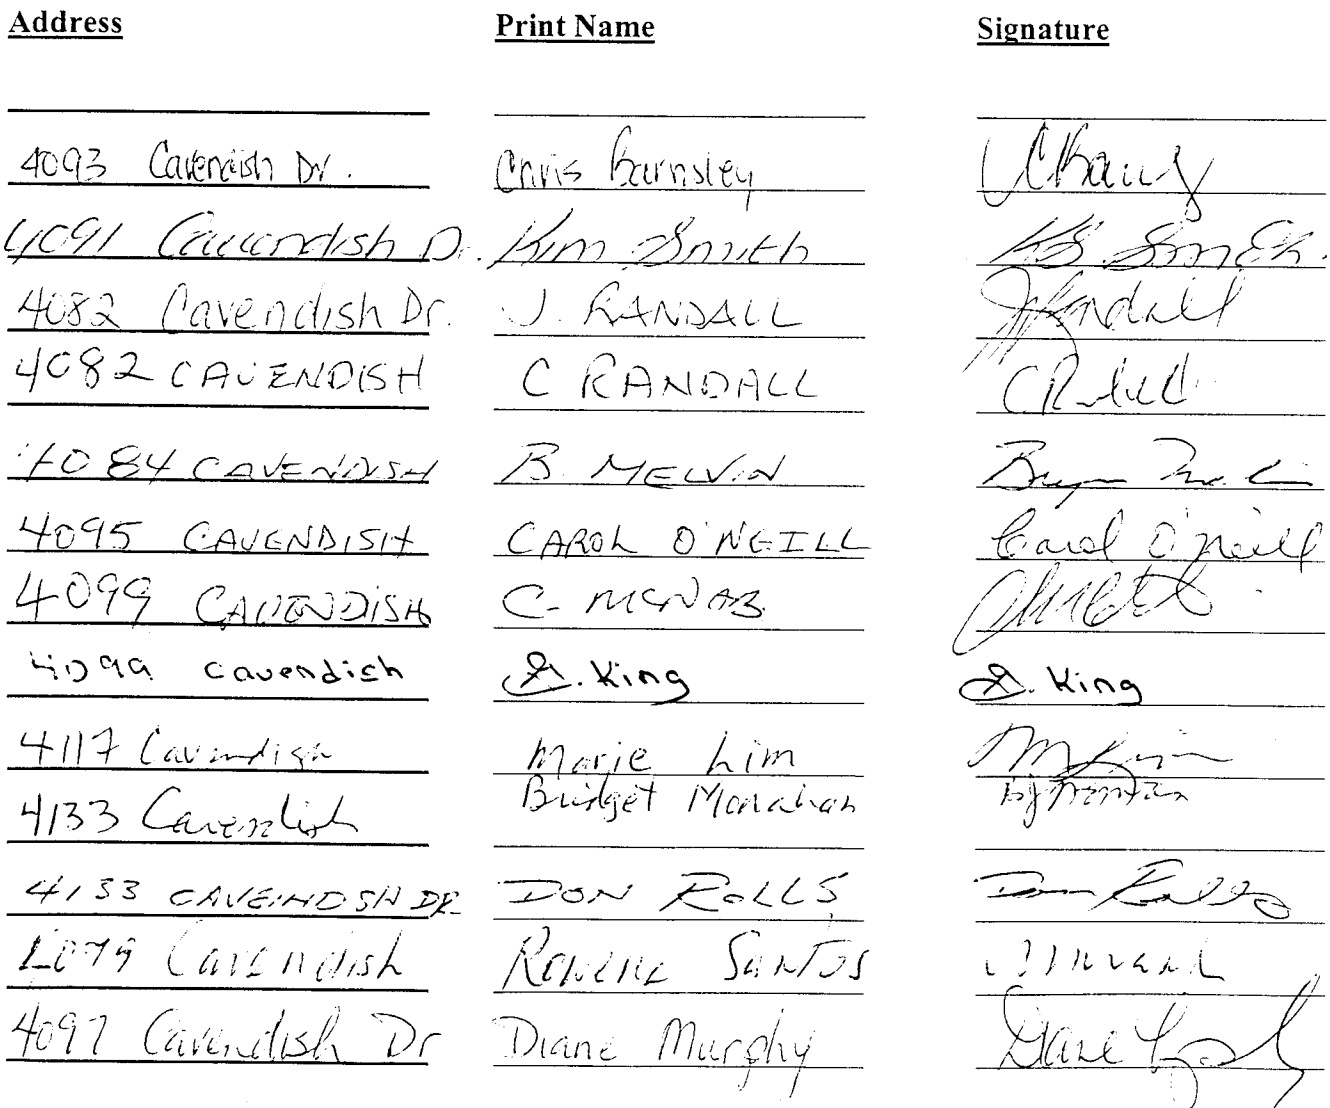 Address Print Name Signature
4093 Cavendish Dr. Chris Barnsley
4091 Cavendish Dr. Kim Smith K.S. Smith.
4082 Cavendish Dr. J. RANDALL J Randall
4082 CAVENDISH C RANDALL C Randall
4084 CAVENDISH B. MELVIN
4095 CAVENDISH CAROL O'NEILL Carol O'Neill
4099 CAVENDISH C. MCNAB
4099 Cavendish G. King G. King
4117 Cavendish Marie Lim M Lim
4133 Cavendish Bridget Monahan
4133 CAVENDISH DR. DON ROLLS Don Rolls
4079 Cavendish Santos
4097 Cavendish Dr Diane Murphy